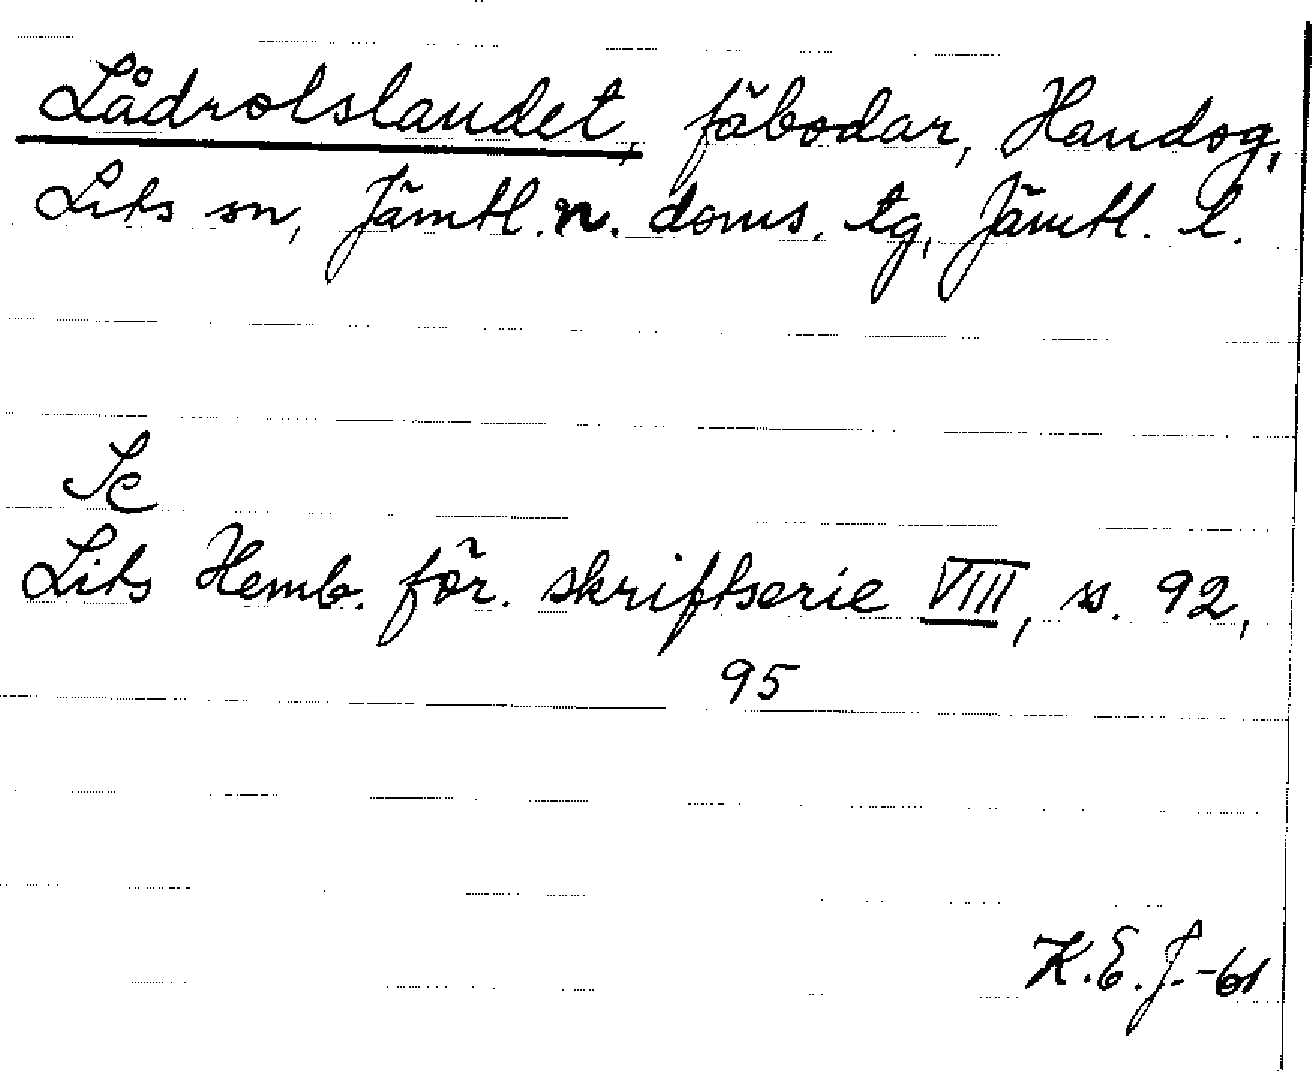 Lådrolslandet, fäbodar, Handog,
Lits sn, Jämtl. n. doms. tg, Jämtl. l.
Se
Lits Hemb. för. skriftserie VIII, ss. 92,
95
K.E.J.-61